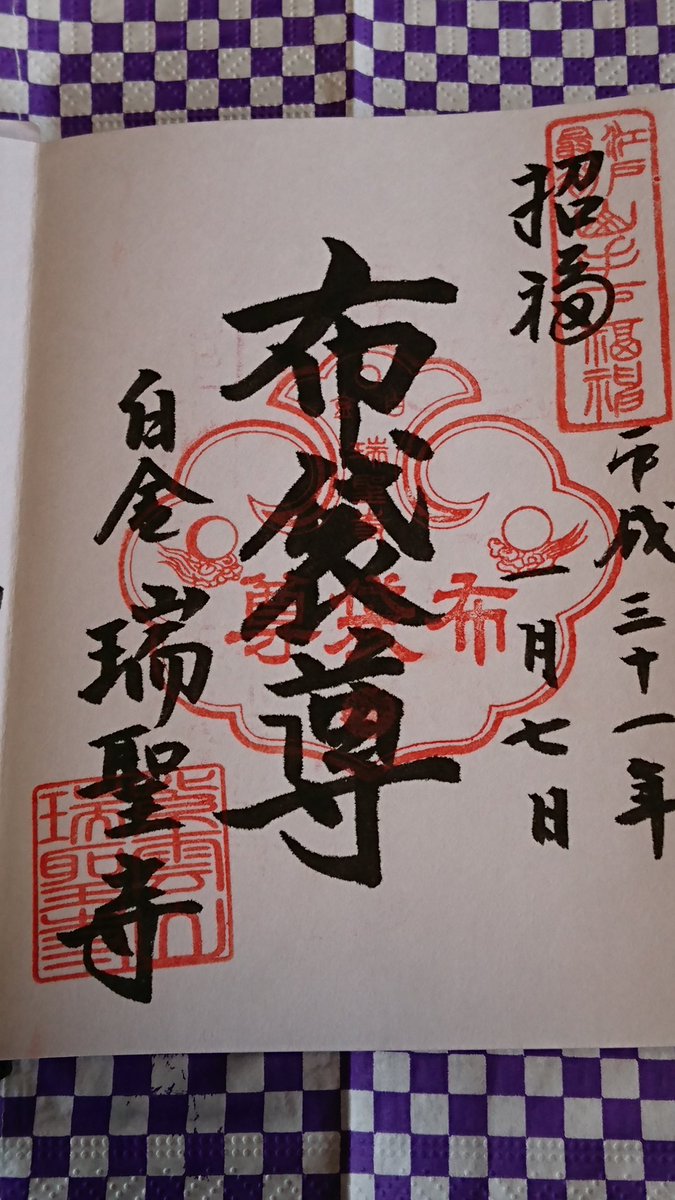 招福
平成三十一年
一月七日
布袋尊
白金
瑞聖寺
江戸
最初
山手七福神
瑞聖寺
布袋尊
紫雲山
瑞聖寺